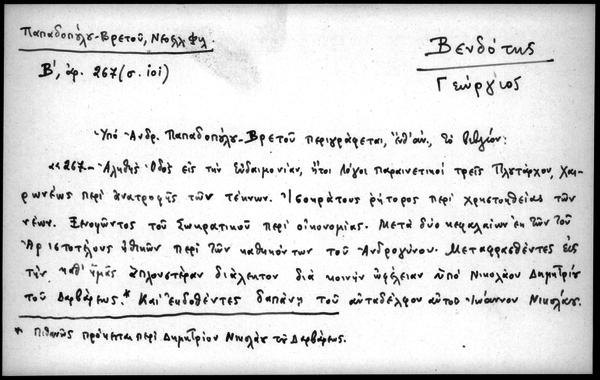 Παπαδοπούλου-Βρετού, Νεοελλ. Φιλ.
Β', άρ. 267 (σ. 101)
Βενδότης
Γεώργιος
Ὑπό Ἀνδρ. Παπαδοπούλου-Βρετοῦ περιγράφεται, ἔνθ' ἀν., τό βιβλίον:
«267.- Ἀληθής Ὁδός εἰς τήν Εὐδαιμονίαν, ἤτοι Λόγοι Παραινετικοί τρεῖς Πλουτάρχου, Χαι-
ρωνέως περί ἀνατροφῆς τῶν τέκνων. Ἰσοκράτους ῥήτορος περί χρηστοηθείας τῶν
νέων. Ξενοφῶντος τοῦ Σωκρατικοῦ περί οἰκονομίας. Μετά δύο κεφαλαίων ἐκ τῶν τοῦ
Ἀριστοτέλους ἠθικῶν περί τῶν καθηκόντων τοῦ Ἀνδρογύνου. Μεταφρασθέντες εἰς
τήν καθ' ἡμᾶς ἁπλουστέραν διάλεκτον διά κοινήν ὠφέλειαν ὑπό Νικολάου Δημητρίου
τοῦ Δαρβάρεως.* Καί ἐκδοθέντες δαπάνῃ τοῦ αὐταδέλφου αὐτοῦ Ἰωάννου Νικολάου.
* Πιθανῶς πρόκειται περί Δημητρίου Νικολάου τοῦ Δαρβάρεως.